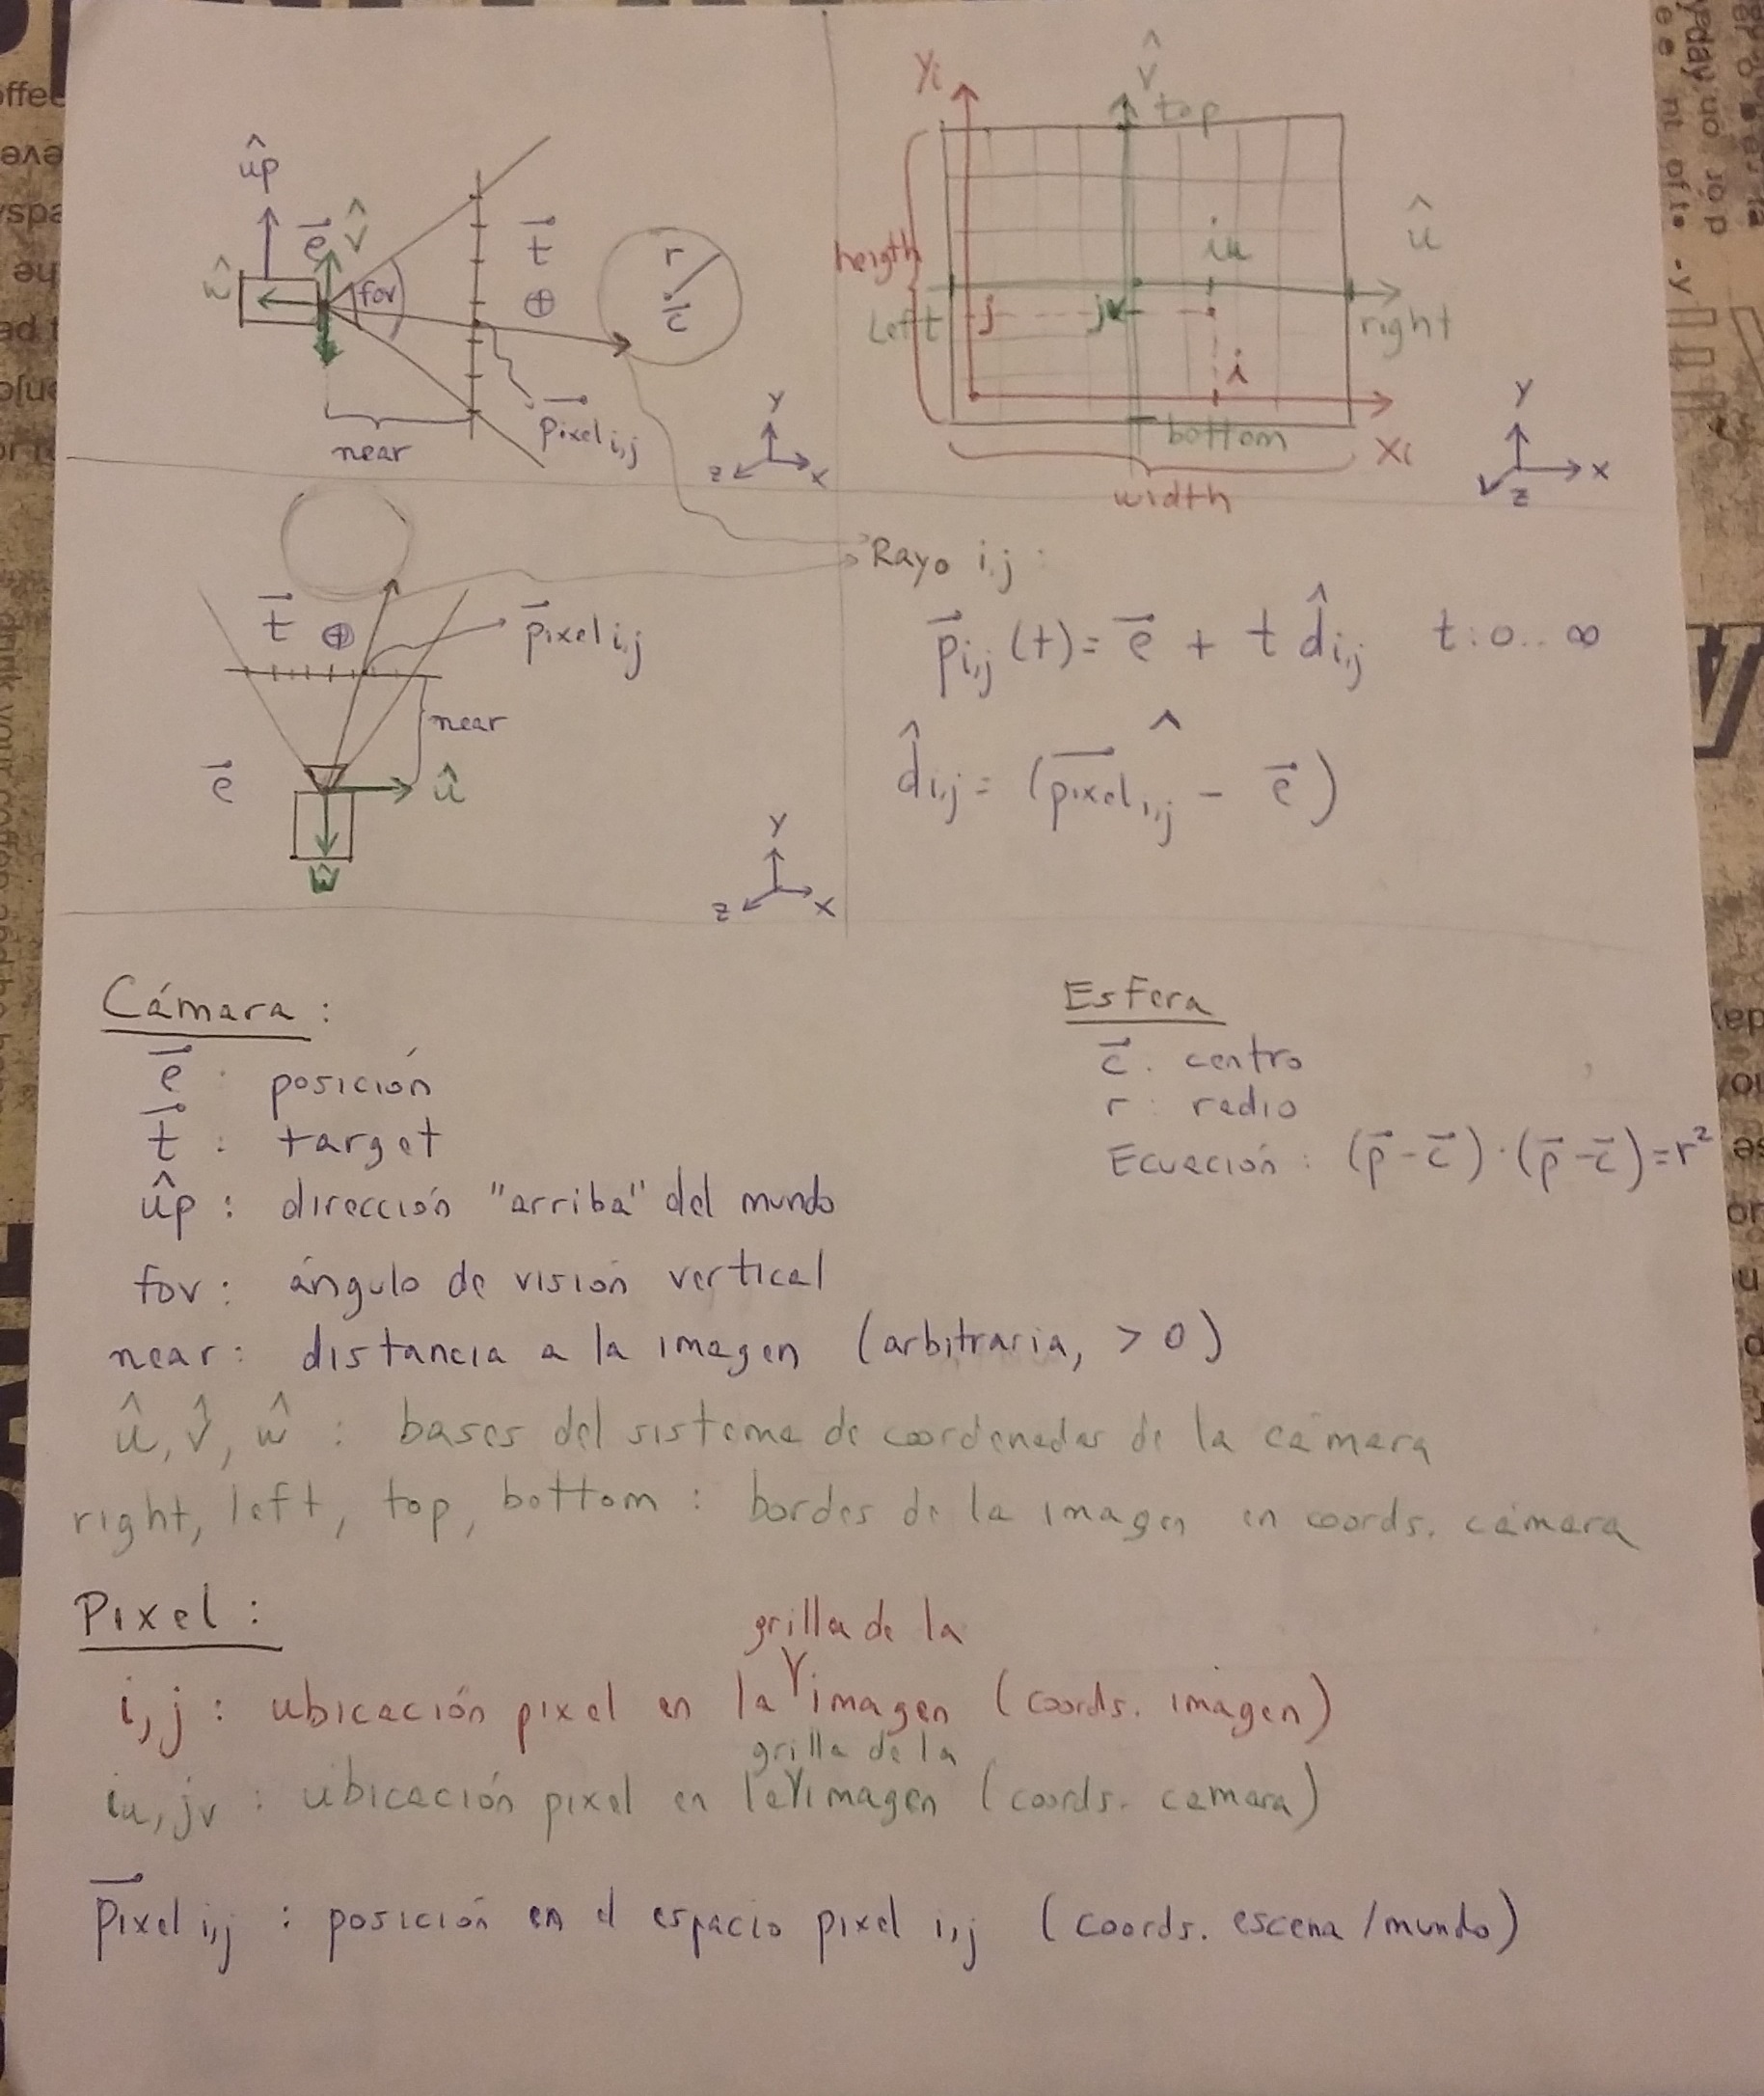 ûp
e⃗ v̂
ŵ
fov
t⃗
r
c⃗
near
p⃗ixel i,j
Y
Z X
Yi
v̂
top
û
heigth
iu
Left
j
jv
right
i
bottom
Xi
width
Y
X
Z
t⃗
p⃗ixel i,j
near
e⃗
û
ŵ
Y
Z X
Rayo i,j :
p⃗i,j (t) = e⃗ + t d̂i,j t:0..∞
d̂i,j = (p⃗ixel i,j - e⃗) ^
Cámara :
e⃗ : posición
t⃗ : target
ûp : dirección "arriba" del mundo
fov : ángulo de visión vertical
near : distancia a la imagen (arbitraria, > 0)
û, v̂, ŵ : bases del sistema de coordenadas de la cámara
right, left, top, bottom : bordes de la imagen en coords. cámara
Esfera
c⃗ : centro
r : radio
Ecuación : (p⃗ - c⃗) · (p⃗ - c⃗) = r²
Pixel :
i, j : ubicación pixel en la grilla de la imagen (coords. imagen)
iu, jv : ubicación pixel en la grilla de la imagen (coords. camara)
p⃗ixel i,j : posición en el espacio pixel i,j (coords. escena / mundo)